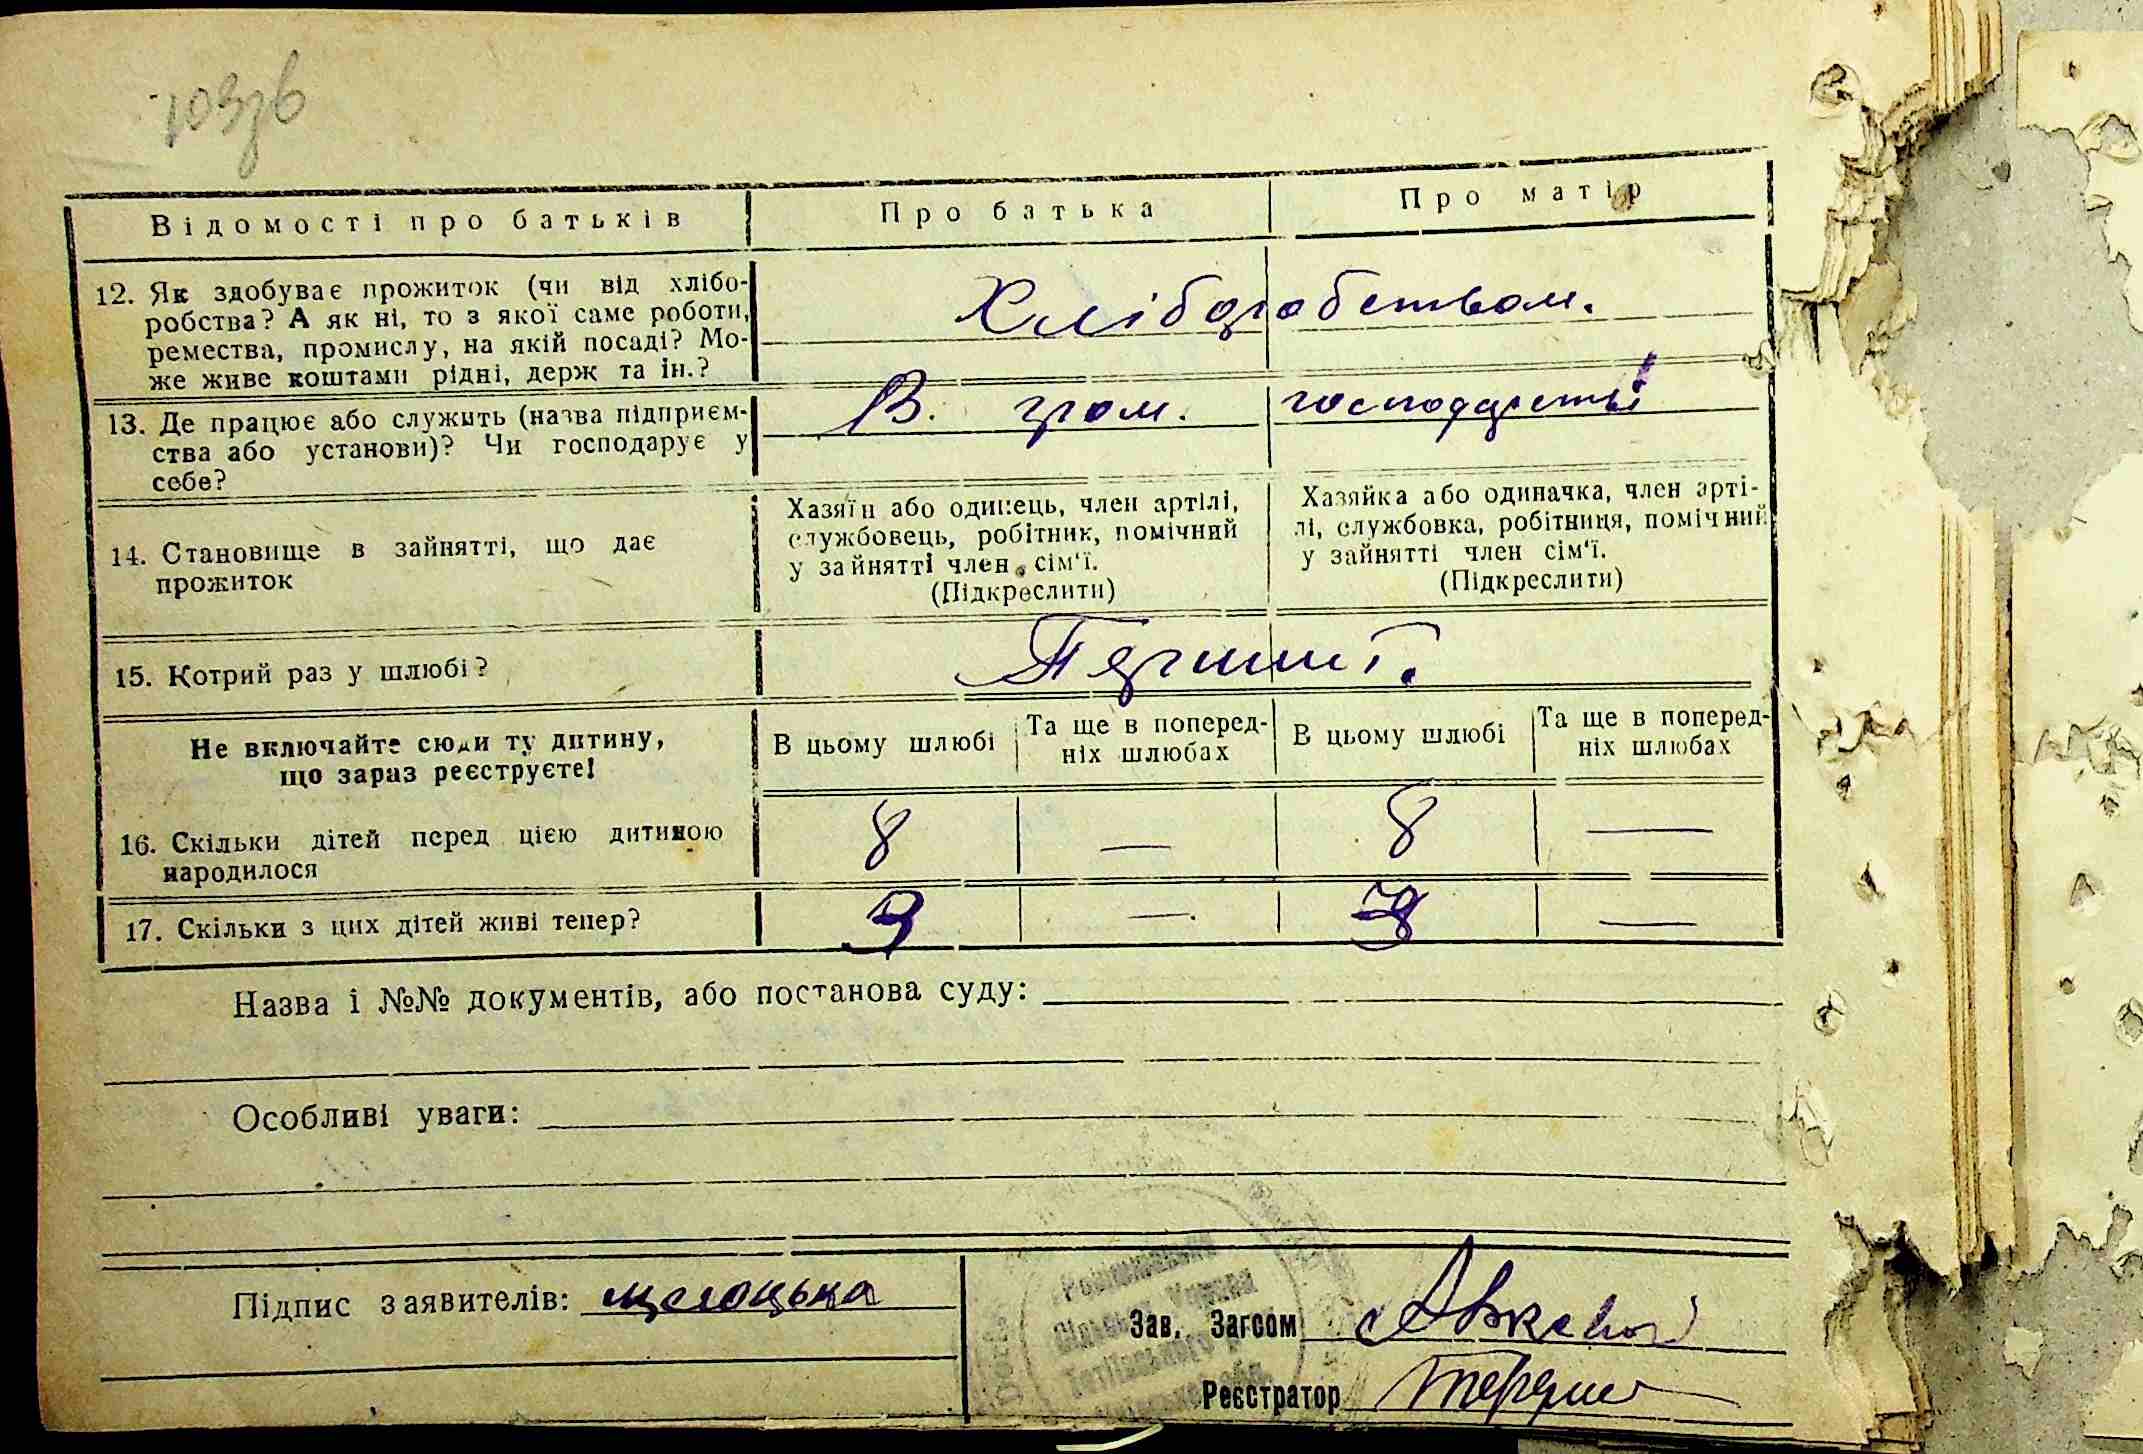 103зв
Відомості про батьків
Про батька
Про матір
12. Як здобуває прожиток (чи від хлібо-
робства? А як ні, то з якої саме роботи,
ремества, промислу, на якій посаді? Мо-
же живе коштами рідні, держ та ін.?
Хліборобством.
13. Де працює або служить (назва підприєм-
ства або установи)? Чи господарує у
себе?
В. гром. господарстві
14. Становище в зайнятті, що дає
прожиток
Хазяїн або одинець, член артілі,
службовець, робітник, помічний
у зайнятті член сім'ї.
(Підкреслити)
Хазяйка або одиначка, член арті-
лі, службовка, робітниця, помічний
у зайнятті член сім'ї.
(Підкреслити)
15. Котрий раз у шлюбі?
Не включайте сюди ту дитину,
що зараз реєструєте!
В цьому шлюбі
Та ще в поперед-
ніх шлюбах
В цьому шлюбі
Та ще в поперед-
ніх шлюбах
16. Скільки дітей перед цією дитиною
народилося
8 — 8 —
17. Скільки з цих дітей живі тепер?
— —
Назва і №№ документів, або постанова суду:
Особливі уваги:
Підпис заявителів:
Зав. Загсом
Реєстратор